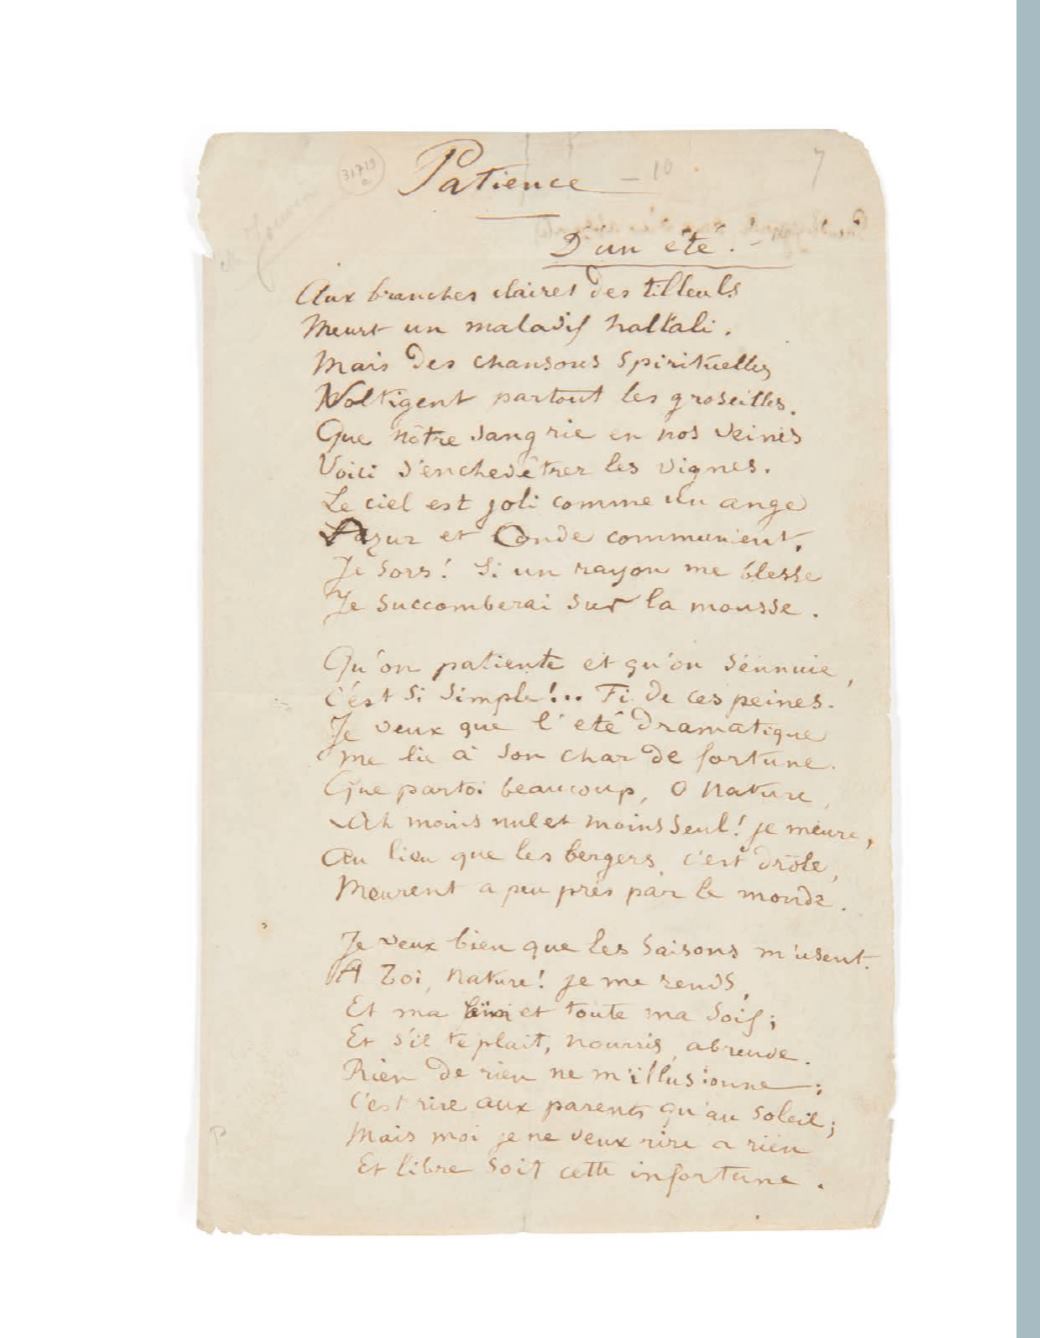 31719
a
Patience — 10
7
D'un été. -
Aux branches claires des tilleuls
Meurt un maladif hallali.
Mais des chansons spirituelles
Voltigent partout les groseilles.
Que nôtre sang rie en nos veines
Voici s'enchevêtrer les vignes.
Le ciel est joli comme un ange
Azur et Onde communient.
Je sors! Si un rayon me blesse
Je succomberai sur la mousse.
Qu'on patiente et qu'on s'ennuie,
C'est si simple!.. Fi de ces peines.
Je veux que l'été dramatique
Me lie à son char de fortune.
Que par toi beaucoup, O Nature,
Ah moins nul et moins seul! je meure,
Au lieu que les bergers, c'est drôle,
Meurent a peu près par le monde.
Je veux bien que les saisons m'usent.
A Toi, Nature! je me rends,
Et ma faim et toute ma soif;
Et s'il te plait, nourris, abreuve.
Rien de rien ne m'illusionne;
C'est rire aux parents qu'au soleil;
Mais moi je ne veux rire a rien
Et libre soit cette infortune.